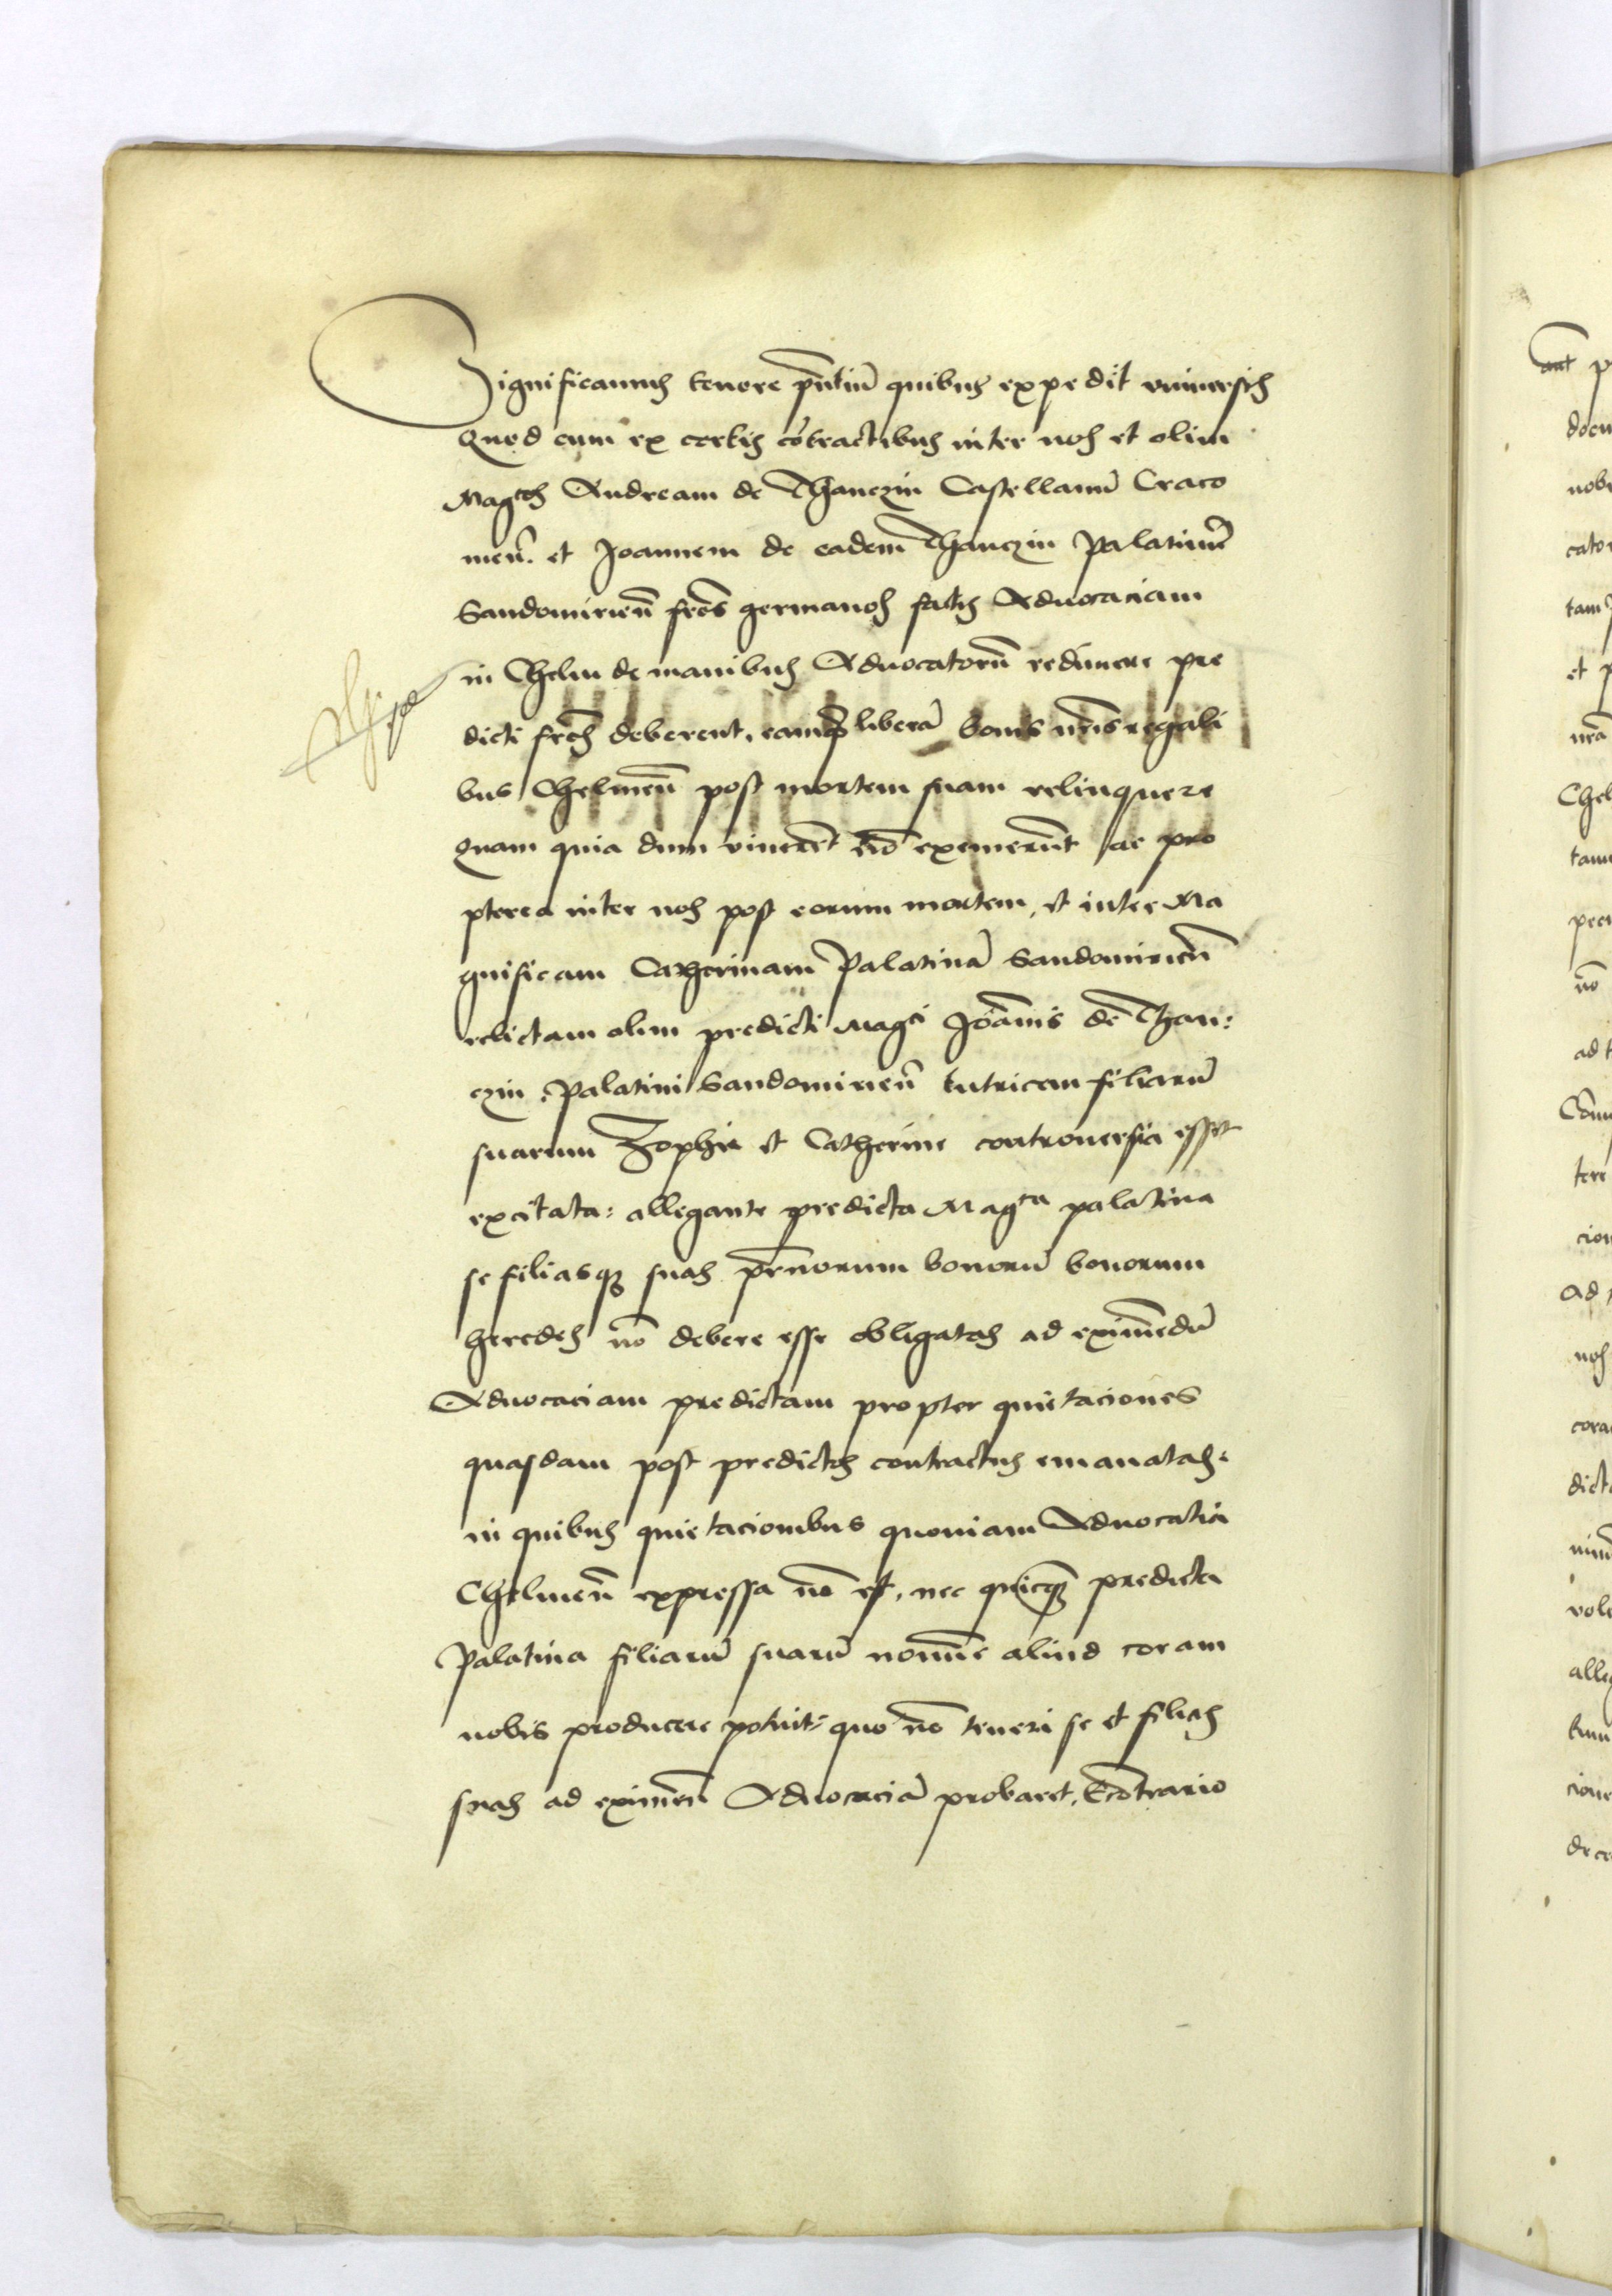 Significamus tenore pñtiũ quibus expedit vniuersis
Quod cum ex certis cõtractibus inter nos et olim
Magcos Andream de Thanczin Castellanũ Craco
uieñ. et Joannem de eadem Thanczin Palatinũ
Sandomirieñ frẽs germanos factis Aduocaciam
in Chelm de manibus Aduocatorũ redimere pre
dicti frẽs deberent, eamqz liberã bonis nr̃is regali
bus Chelmeñ post mortem suam relinquere
quam quia dum viuerẽt nõ exemerũt ac pro
pterea inter nos post eorum mortem, et inter Ma
gnificam Catherinam Palatinã Sandomirieñ
relictam olim predicti Magci Joãnis de Than:
czin Palatini Sandomirieñ tutricem filiarũ
suarum Zophie et Catherine controuersia esset
excitata: allegante predicta Magca palatina
se filiasqz suas pr̃norum bonorũ bonorum
heredes nõ debere esse obligatas ad eximẽdũ
Aduocaciam predictam propter quietaciones
quasdam post predictos contractus emanatas.
in quibus quietacionibus quoniam Aduocatia
Chelmeñ expressa nõ est, nec quicqz predicta
Palatina filiarũ suarũ nomine aliud coram
nobis producere potuit: quo nõ teneri se et filias
suas ad eximeñ Aduocaciã probaret, Ecõtrario